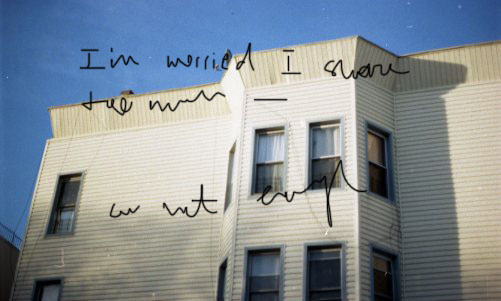 I'm worried I share
too much —
or not enough